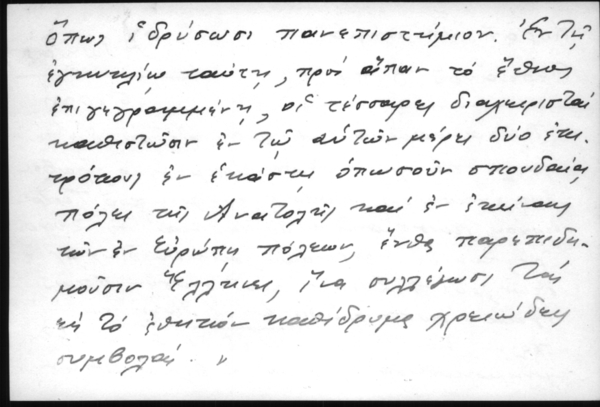 ὅπως ἱδρύσωσι πανεπιστήμιον. Ἐν τῇ
ἐγκυκλίῳ ταύτῃ, πρὸς ἅπαν τὸ ἔθνος
ἐπιγεγραμμένῃ, οἱ τέσσαρες διαχειρισταὶ
καθιστῶσιν ἐν τῷ αὐτῶν μέρει δύο ἐπι-
τρόπους ἐν ἑκάστῃ ὁπωσοῦν σπουδαίᾳ
πόλει τῆς Ἀνατολῆς καὶ ἐν ἐκείναις
τῶν ἐν Εὐρώπῃ πόλεων, ἔνθα παρεπιδη-
μοῦσιν Ἕλληνες, ἵνα συλλέγωσι τὰς
εἰς τὸ ἐθνικὸν καθίδρυμα χρειώδεις
συμβολάς. »